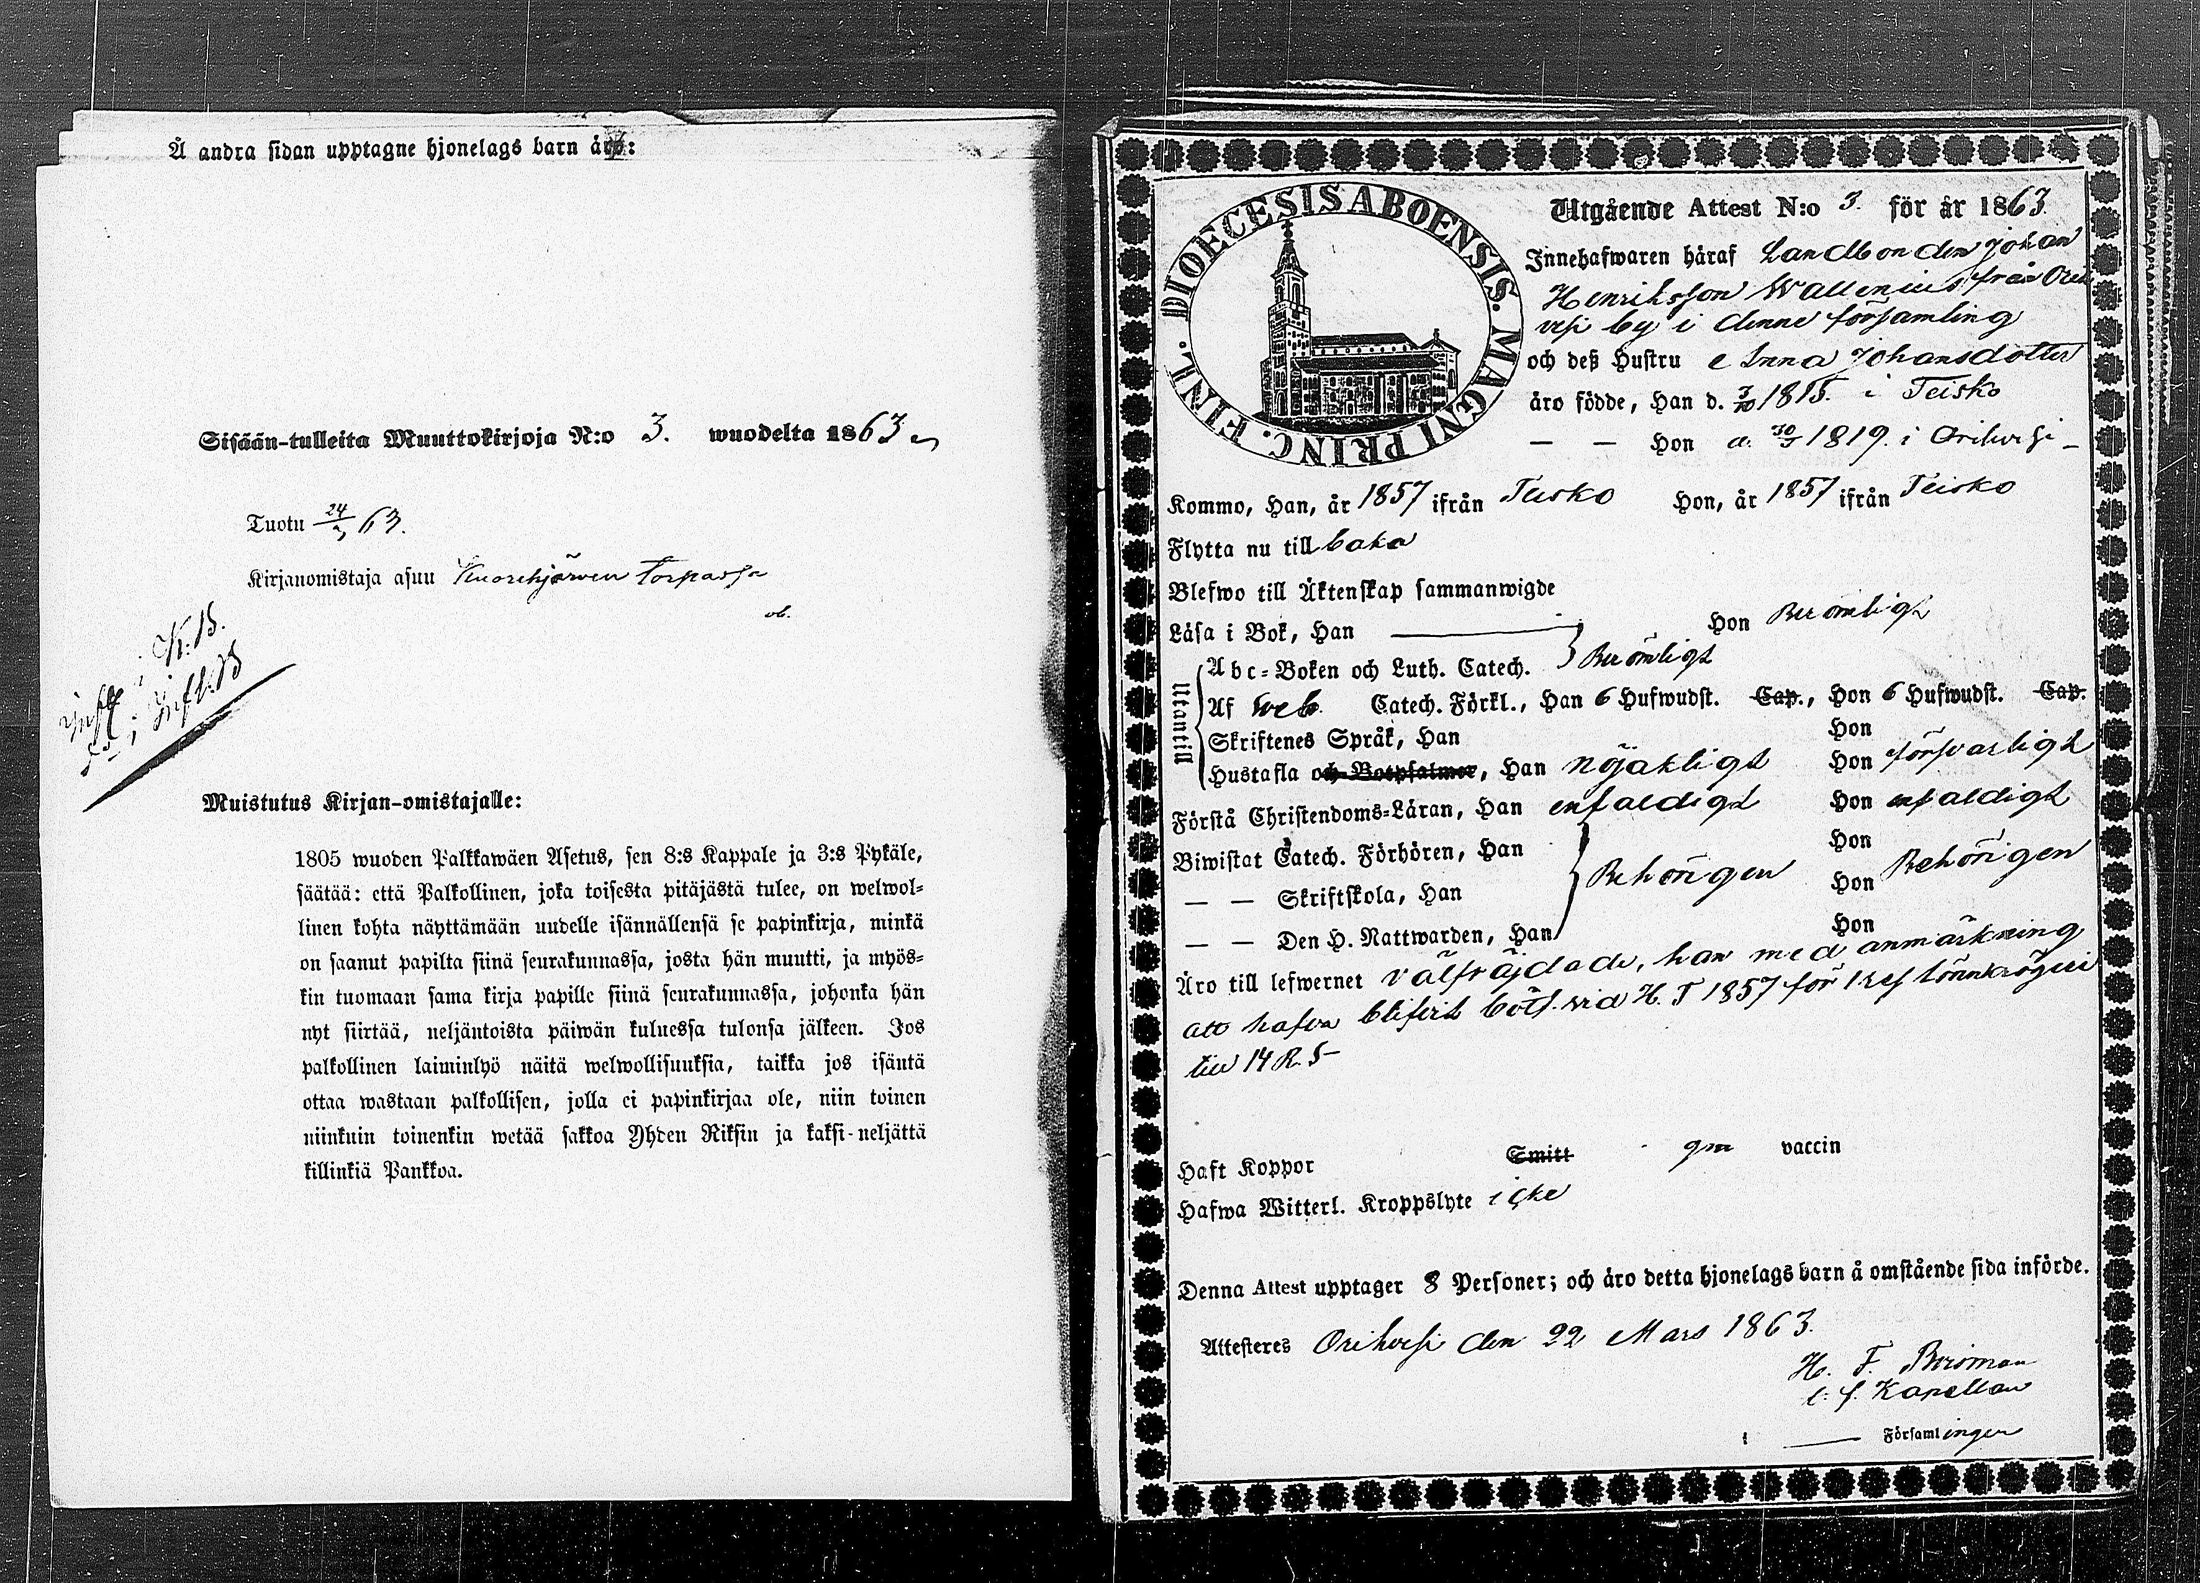 Å andra sidan upptagne hjonelags barn äro:
Sisään-tulleita Muuttokirjoja N:o 3. wuodelta 1863
Tuotu 24/3 63.
Kirjanomistaja asuu Kuorehjärwen Torpassa
ob.
K.B.
Infl. B
Muistutus Kirjan-omistajalle:
1805 wuoden Palkkawäen Asetus, sen 8:s Kappale ja 3:s Pykäle,
säätää: että Palkollinen, joka toisesta pitäjästä tulee, on welwol-
linen kohta näyttämään uudelle isännällensä se papinkirja, minkä
on saanut papilta siinä seurakunnassa, josta hän muutti, ja myös-
kin tuomaan sama kirja papille siinä seurakunnassa, johonka hän
nyt siirtää, neljäntoista päiwän kuluessa tulonsa jälkeen. Jos
palkollinen laiminlyö näitä welwollisuuksia, taikka jos isäntä
ottaa wastaan palkollisen, jolla ei papinkirjaa ole, niin toinen
niinkuin toinenkin wetää sakkoa Yhden Riksin ja kaksi-neljättä
killinkiä Pankkoa.
DIOECESIS ABOENSIS. MAGNI PRINC. FINL.
Utgående Attest N:o 3. för år 1863.
Innehafwaren häraf Landbonden Johan
Henriksson Wallenius från Ori
vesi by i denne församling
och deß Hustru Anna Johansdotter
äro födde, Han d. 3/10 1815. i Teisko
— — Hon d. 30/3 1819. i Orihvesi
Kommo, Han, år 1857 ifrån Teisko Hon, år 1857 ifrån Teisko
Flytta nu till baka
Blefwo till Äktenskap sammanwigde
Läsa i Bok, Han Hon Berömligt
Utantill
Abc-Boken och Luth. Catech. Berömligt
Af Sveb. Catech. Förkl., Han 6 Hufwudst. Cap., Hon 6 Hufwudst. Cap.
Skriftenes Språk, Han Hon
Hustafla och Botpsalmer, Han nöjakligt Hon försvarligt
Förstå Christendoms-Läran, Han enfaldigt Hon enfaldigt
Biwistat Catech. Förhören, Han Hon
— — Skriftskola, Han Behörigen Hon Behörigen
— — Den H. Nattwarden, Han Hon
Äro till lefwernet välfräjdade, han med anmärkning
att hafva blifvit böt. vid H. T 1857 för 1 resa lönnkrögeri
till 14 R. S
Haft Koppor Smitt gm vaccin
Hafwa Witterl. Kroppslyte icke
Denna Attest upptager 8 Personer; och äro detta hjonelags barn å omstående sida införde.
Attesteras Orihvesi den 22 Mars 1863.
H. F.
t. f. Kapellan
Församlingen